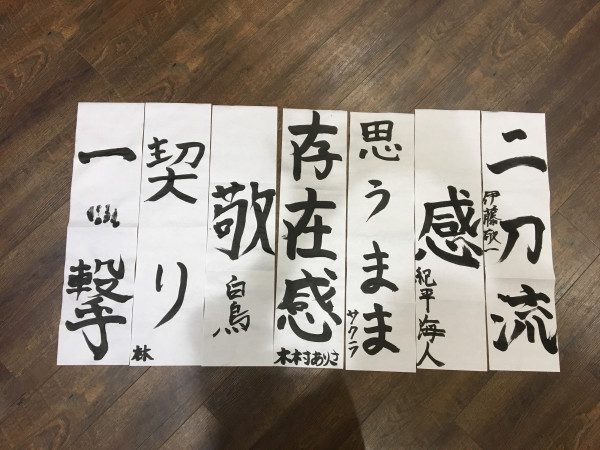 二刀流
伊藤敬一
感
紀平海人
思うまま
サクラ
存在感
木村ありさ
敬
白鳥
契り
林
一撃